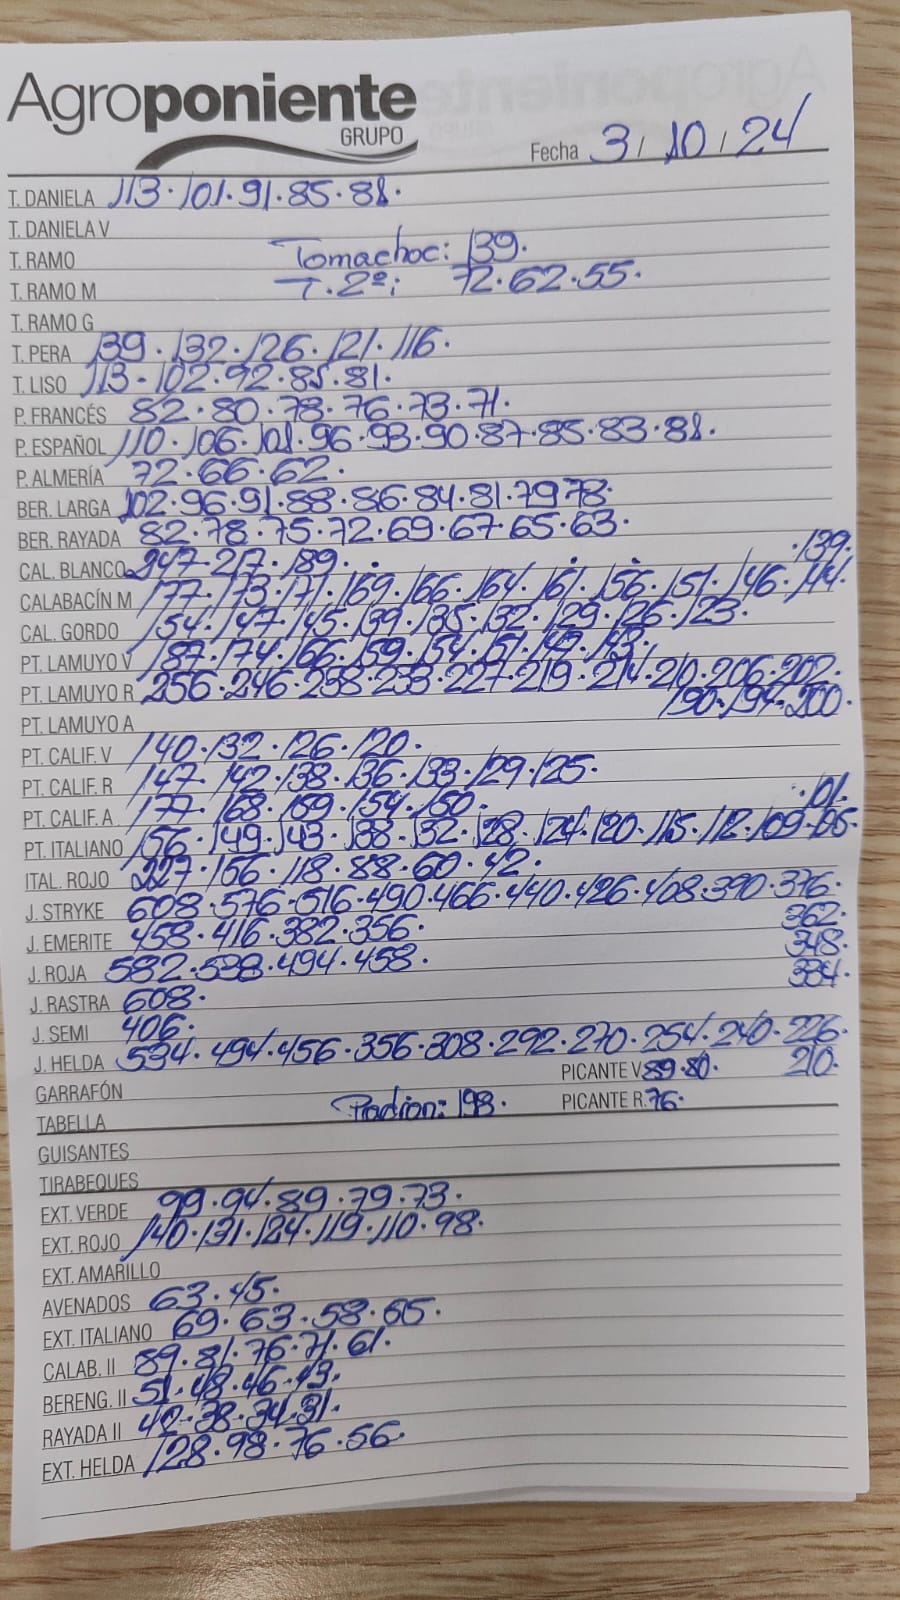 Agroponiente
GRUPO
Fecha 3/10/24
T. DANIELA 113·101·91·85·81·
T. DANELA V
T. RAMO Tomachoc: 139·
T. RAMO M T.2º: 72·62·55·
T. RAMO G
T. PERA 139·132·126·121·116·
T. LISO 113·102·92·85·81·
P. FRANCÉS 82·80·78·76·73·71·
P. ESPAÑOL 110·106·101·96·93·90·87·85·83·81·
P. ALMERÍA 72·66·62·
BER. LARGA 102·96·91·88·86·84·81·79·78·
BER. RAYADA 82·78·75·72·69·67·65·63·
CAL. BLANCO 247·217·189·
CALABACÍN M 177·173·171·169·166·164·161·156·151·146·144·139·
CAL. GORDO 154·147·145·139·135·132·129·126·123·
PT. LAMUYO V 187·174·166·159·154·151·147·143·
PT. LAMUYO R 256·246·238·233·227·219·214·210·206·202·
190·194·200·
PT. LAMUYO A
PT. CALIF. V 140·132·126·120·
PT. CALIF. R 147·142·138·136·133·129·125·
PT. CALIF. A 177·168·159·154·150·
PT. ITALIANO 156·149·143·138·132·128·124·120·115·112·109·105·101·
ITAL. ROJO 227·156·118·88·60·42·
J. STRYKE 608·576·516·490·466·440·426·408·390·376·
362·
J. EMERITE 458·416·382·356·
348·
J. ROJA 582·538·494·458·
334·
J. RASTRA 608·
J. SEMI 406·
J. HELDA 534·494·456·356·308·292·270·254·240·226·
210·
GARRAFÓN PICANTE V. 89·80·
TABELLA Padion: 193· PICANTE R. 76·
GUISANTES
TIRABEQUES
EXT. VERDE 99·94·89·79·73·
EXT. ROJO 140·131·124·119·110·98·
EXT. AMARILLO
AVENADOS 63·45·
EXT. ITALIANO 69·63·58·55·
CALAB. II 89·81·76·71·61·
BERENG. II 51·48·46·43·
RAYADA II 42·38·34·31·
EXT. HELDA 128·98·76·56·